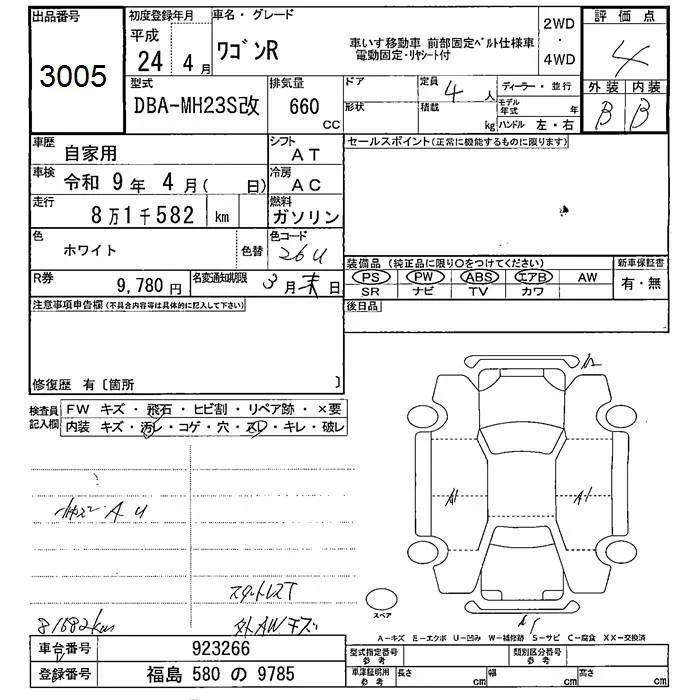 出品番号
3005
初度登録年月
平成
24年 4月
車名・グレード
ワゴンR
車いす移動車 前部固定ベルト仕様車
電動固定・リヤシート付
2WD
・
4WD
評価点
4
外装 内装
B B
型式
DBA-MH23S改
排気量
660
CC
ドア
形状
定員 4人
積載 kg
ディーラー・並行
モデル年式 年
ハンドル 左・右
車歴
自家用
シフト
AT
車検 令和 9年 4月( 日)
冷房
AC
走行
8万1千582 km
燃料
ガソリン
色
ホワイト
色替
色コード
26U
R券
9,780円
名変通知期限
3月末日
セールスポイント(正常に機能するものに限ります)
装備品 (純正品に限り○をつけてください)
PS PW ABS エアB AW
SR ナビ TV カワ
新車保証書
有・無
後日品
注意事項申告欄(不具合内容等は具体的に記入して下さい)
修復歴 有〔箇所 〕
検査員記入欄
FW キズ・飛石・ヒビ割・リペア跡・×要
内装 キズ・汚レ・コゲ・穴・スレ・キレ・破レ
A U
スタットレスT
外AWキズ
81582km
A1
A1
スペア
A-キズ E-エクボ U-凹み W-補修跡 S-サビ C-腐食 XX-交換済
車台番号
923266
登録番号
福島 580 の 9785
型式指定番号
参考
類別区分番号
参考
車庫証明用
参考
長さ cm
幅 cm
高さ cm